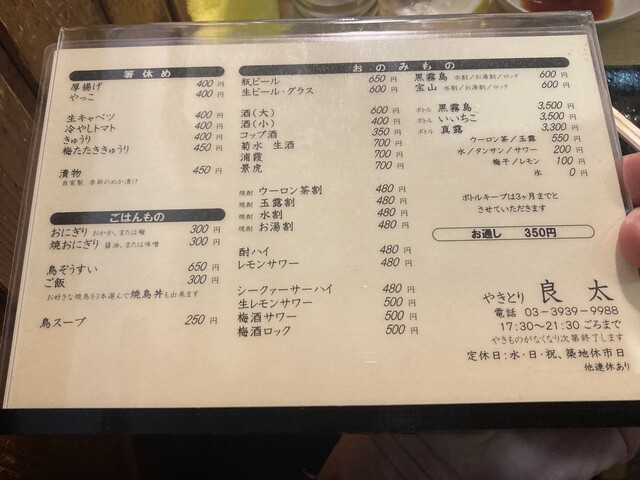 箸休め
厚揚げ 400円
やっこ 400円
生キャベツ 400円
冷やしトマト 400円
きゅうり 400円
梅たたききゅうり 450円
漬物 450円
自家製 季節のぬか漬け
ごはんもの
おにぎり おかか、または梅 300円
焼おにぎり 醤油、または味噌 300円
鳥ぞうすい 650円
ご飯 300円
お好きな焼鳥を3本選んで焼鳥丼も出来ます
鳥スープ 250円
おのみもの
瓶ビール 650円
生ビール・グラス 600円
酒(大) 600円
酒(小) 400円
コップ酒 350円
菊水 生酒 700円
浦霞 700円
景虎 700円
焼酎 ウーロン茶割 480円
焼酎 玉露割 480円
焼酎 水割 480円
焼酎 お湯割 480円
酎ハイ 480円
レモンサワー 480円
シークァーサーハイ 480円
生レモンサワー 500円
梅酒サワー 500円
梅酒ロック 500円
黒霧島 水割/お湯割/ロック 600円
宝山 水割/お湯割/ロック 600円
ボトル 黒霧島 3,500円
ボトル いいちこ 3,500円
ボトル 真露 3,300円
ウーロン茶/玉露 550円
水/タンサン/サワー 200円
梅干/レモン 100円
氷 0円
ボトルキープは3ヶ月までと
させていただきます
お通し 350円
やきとり 良太
電話 03-3939-9988
17:30〜21:30ごろまで
やきものがなくなり次第終了します
定休日:水・日・祝、築地休市日
他連休あり